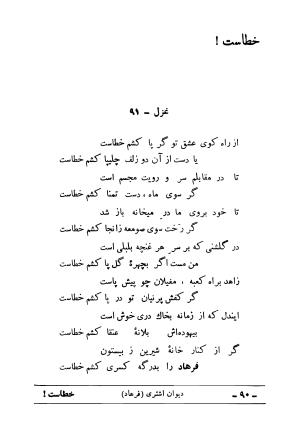 خطاست !
غزل - ۹۱
از راه کوی عشق تو گر پا کشم خطاست
یا دست از آن دو زلف چلیپا کشم خطاست
تا در مقابلم سر و رویت مجسم است
گر سوی ماه، دست تمنا کشم خطاست
تا خود بروی ما در میخانه باز شد
گر رخت سوی صومعه زانجا کشم خطاست
در گلشنی که بر سر هر غنچه بلبلی است
من مست اگر بچهرهٔ گل پا کشم خطاست
زاهد براه کعبه ، مغیلان چو پیش پاست
گر کفش پرنیان تو در پا کشم خطاست
ایندل که از زمانه بخاک دری خوش است
بیهوده‌اش بلانهٔ عنقا کشم خطاست
گر از کنار خانهٔ شیرین ز بیستون
فرهاد را بدرگه کسری کشم خطاست
- ۹۰ - دیوان اشتری (فرهاد) خطاست !